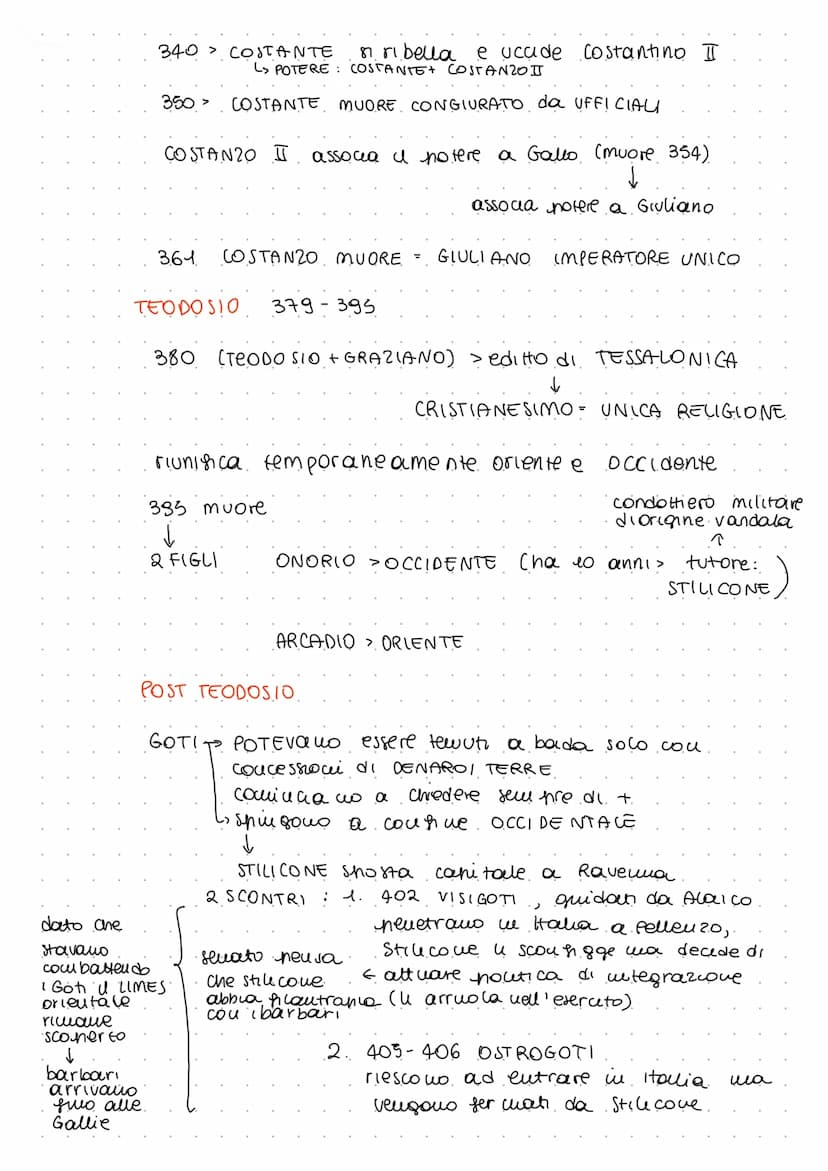 340 > COSTANTE si ribella e uccide Costantino II
↳ POTERE: COSTANTE + COSTANZO II
350 > COSTANTE MUORE CONGIURATO da UFFICIALI
COSTANZO II associa il potere a Gallo (muore 354)
↓
associa potere a Giuliano
361 COSTANZO MUORE = GIULIANO IMPERATORE UNICO
TEODOSIO 379-395
380 (TEODOSIO + GRAZIANO) > editto di TESSALONICA
↓
CRISTIANESIMO = UNICA RELIGIONE
riunifica temporaneamente oriente e occidente
395 muore
↓
2 FIGLI
condottiero militare
di origine vandala
↑
ONORIO > OCCIDENTE (ha 10 anni > tutore:
STILICONE)
ARCADIO > ORIENTE
POST TEODOSIO
GOTI → POTEVANO essere tenuti a bada solo con
concessioni di DENARO/TERRE
cominciano a chiedere sempre di +
↳ spingono a confine OCCIDENTALE
↓
STILICONE sposta capitale a Ravenna
2 SCONTRI: 1. 402 VISIGOTI, guidati da Alaico
penetrano in Italia a Pollenzo,
Stilicone li sconfigge ma decide di
← attuare politica di integrazione
(li arruola nell'esercito)
senato pensa
che stilicone
abbia filantrania
con i barbari
2. 405-406 OSTROGOTI
riescono ad entrare in Italia ma
vengono fermati da Stilicone
dato che
stavano
combattendo
i Goti il LIMES
orientale
rimane
scoperto
↓
barbari
arrivano
fino alle
Gallie